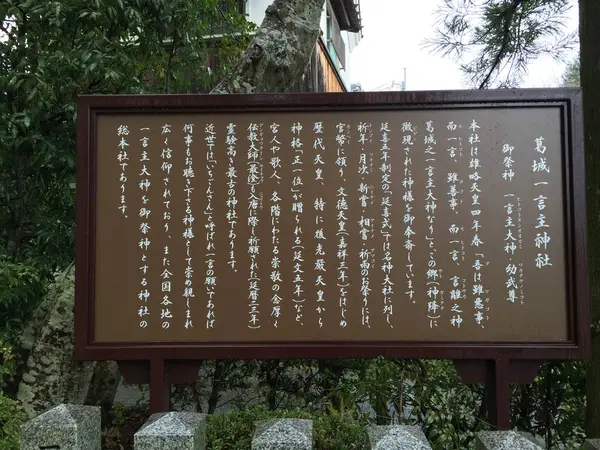 葛城一言主神社
御祭神 一言主大神 幼武尊
本社は雄略天皇四年春「吾は雖悪事、
而一言、雖善事、而一言、言離之神
葛城之一言主大神なり」とこの郷（神降）に
微現された神様を御奉斎しています。
延喜五年制定の「延喜式」では名神大社に列し、
祈年・月次・新嘗・相嘗・祈雨のお祭りには、
官幣に預り、文徳天皇（嘉祥三年）をはじめ
歴代天皇、特に後光厳天皇から
神格「正一位」が贈れる（延文五年）など、
宮人や歌人、各階にわたる崇敬の念厚く
伝教大師（最澄）も入唐に際し祈願された（延暦二三年）
霊験著き最古の神社であります。
近世では「いちごんさん」と呼ばれ一言の願であれば
何事もお聴き下さる神様として崇め親しまれ
広く信仰されており、また全国各地の
一言主大神を御祭神とする神社の
総本社であります。